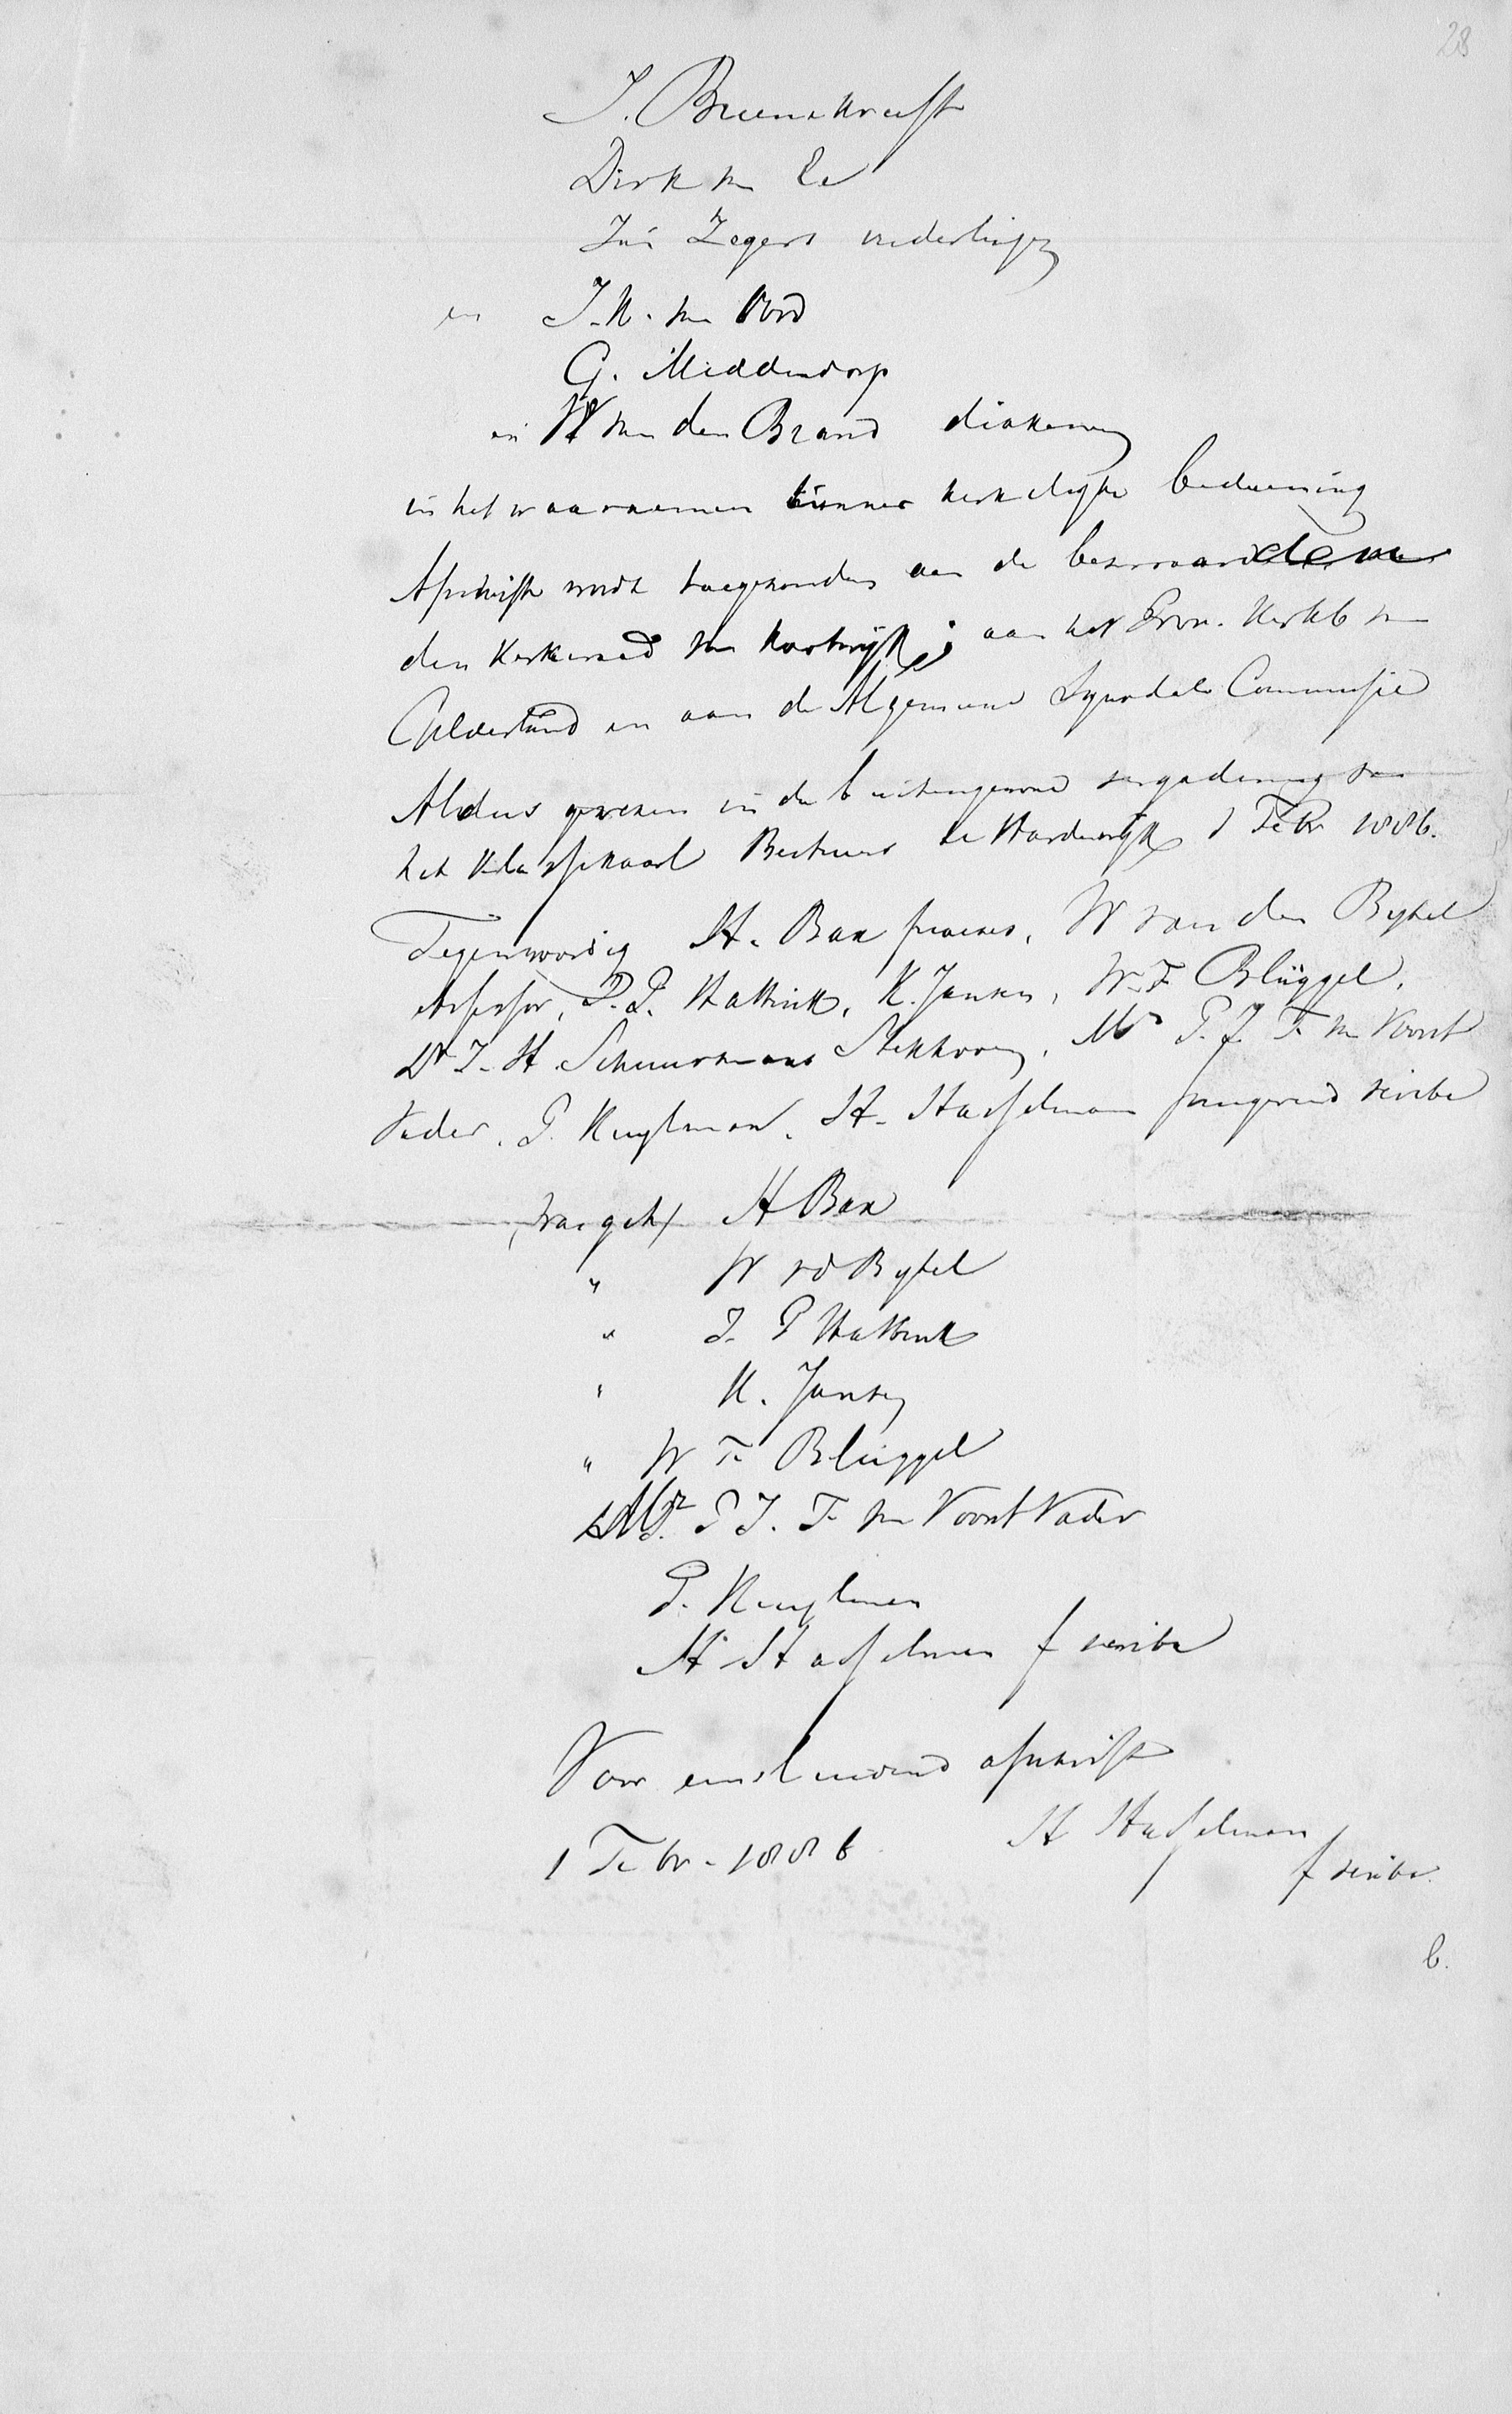 28
J. Bruinekreeft
Dirk van Ee
Jan Zegers ouderlingen
en J. K. van Oord
G. Middendorp
en W van den Brand diakenen
in het waarnemen hunner kerkelijke bediening
Afschrift wordt toegezonden aan de bezwaarden
den Kerkeraad van Kootwijk; aan het Prov. Kerkb van
Gelderland en aan de Algemeene Synodale Commissie
Aldus gewezen in de buitengewone vergadering van
het Klassikaal Bestuur te Harderwijk 1 Febr 1886.
Tegenwoordig H. Bax praeses, W van den Bijtel
Assessor, J. P. Hattink, K. Jansen, W. F. Blüggel,
Dr J. H. Schuurmans Stekhoven, Mr P. J. F. van Voorst
Vader, P. Kuylman, H. Hasselman fungerend scriba
(was get) H Bax
" W vd Bijtel
" J. P Hattink
" K. Jansen
" W F. Blüggel
" Mr. P J. F. van Voorst Vader
P. Kuylman
H Hasselman f scriba
Voor eensluidend afschrift
1 Febr. 1886 H Hasselman
f scriba.
b.